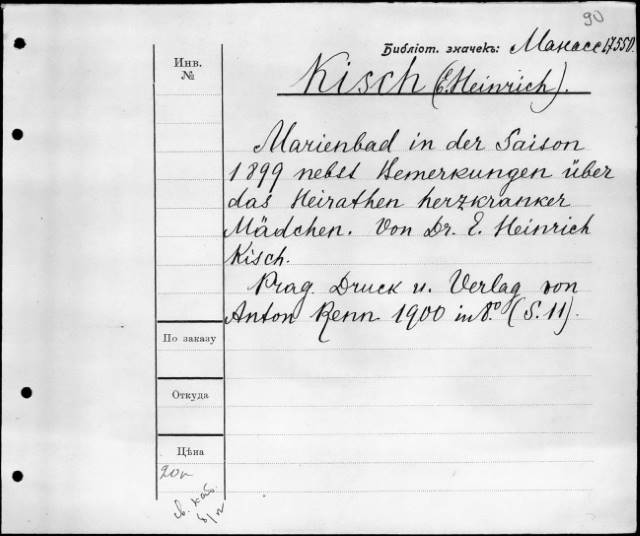 90
Библіот. значекъ: Манасс 17550.
Инв.
№
Kisch (E. Heinrich).
Marienbad in der Saison
1899 nebst Bemerkungen über
das Heirathen herzkranker
Mädchen. Von Dr. E. Heinrich
Kisch.
Prag. Druck u. Verlag von
Anton Renn 1900 in 8.º (S. 11).
По заказу
Откуда
Цѣна
20к